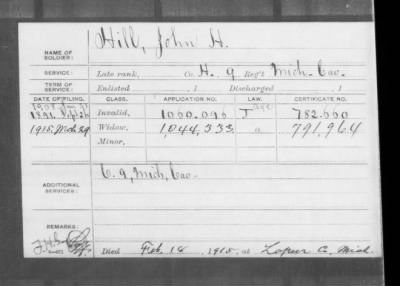 NAME OF SOLDIER: Hill, John H.
SERVICE: Late rank, Co. H. 9 Reg't Mich. Cav.
TERM OF SERVICE: Enlisted , 1 Discharged , 1
DATE OF FILING. CLASS. APPLICATION NO. LAW. CERTIFICATE NO.
1908 age
1891 Invalid, 1060.096 J 782.560
1915, Mch 29 Widow, 1,044,333 a. 791,964
Minor,
ADDITIONAL SERVICES: C. 9, Mich, Cav.
REMARKS:
Died Feb. 14, 1915, at Lapeer Co. Mich.